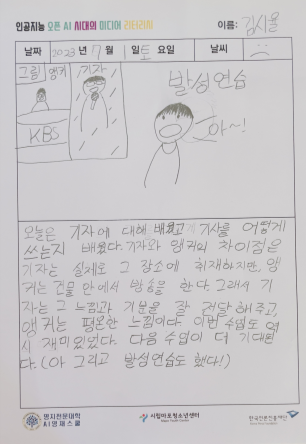 인공지능 오픈 AI 시대의 미디어 리터러시
이름: 김시율
날짜 2023년 7월 1일 토요일 날씨
그림 앵커 기자
발성연습
KBS
아~!
오늘은 기자에 대해 배웠고 기사를 어떻게
쓰는지 배웠다. 기자와 앵커의 차이점은
기자는 실제로 그 장소에 취재하지만, 앵
커는 건물 안에서 방송을 한다. 그래서 기
자는 그 느낌과 기분을 잘 전달해주고,
앵커는 평온한 느낌이다. 이번 수업도 역
시 재미있었다. 다음 수업이 더 기대된
다. (아 그리고 발성연습도 했다!)
명지전문대학
AI영재스쿨
시립마포청소년센터
한국언론진흥재단